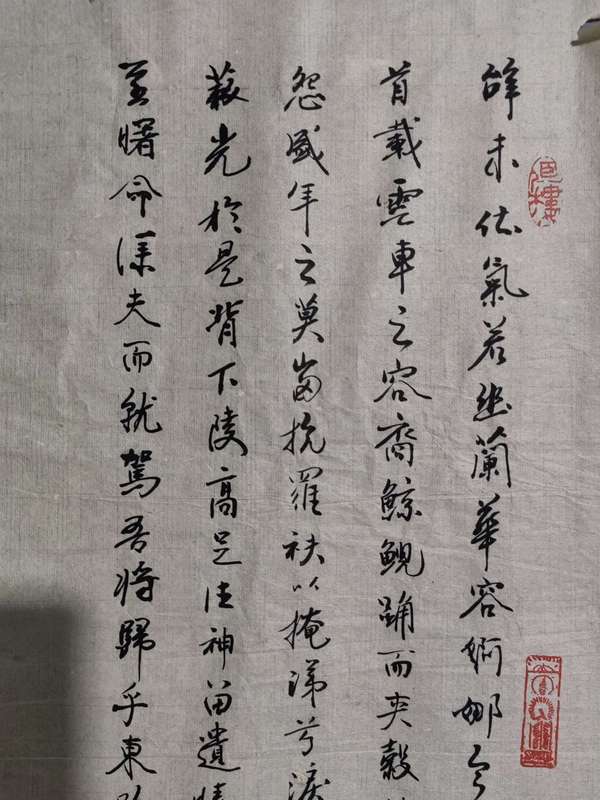 辭未吐氣若幽蘭華容婀娜令
首載雲車之容裔鯨鯢踊而夾轂
怨盛年之莫當抗羅袂以掩涕兮淚
蔽光於是背下陵高足往神留遺情
至曙命僕夫而就駕吾將歸乎東路